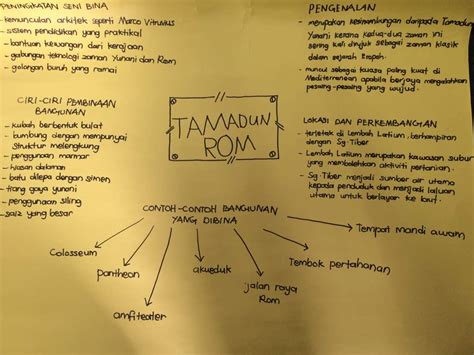 PENINGKATAN SENI BINA
- kemunculan arkitek seperti Marco Vitruvius
- sistem pendidikan yang praktikal
- bantuan kewangan dari kerajaan
- gabungan teknologi zaman Yunani dan Rom
- golongan buruh yang ramai
CIRI-CIRI PEMBINAAN
BANGUNAN
- kubah berbentuk bulat
- bumbung dengan mempunyai
struktur melengkung
- penggunaan marmar
- hiasan dalaman
- batu dilepa dengan simen
- tiang gaya yunani
- penggunaan siling
- saiz yang besar
TAMADUN
ROM
PENGENALAN
- merupakan kesinambungan daripada Tamadun
Yunani kerana kedua-dua zaman ini
sering kali dirujuk sebagai zaman klasik
dalam sejarah Eropah.
- muncul sebagai kuasa paling kuat di
Mediterranean apabila berjaya mengalahkan
pesaing-pesaing yang wujud.
LOKASI DAN PERKEMBANGAN
- terletak di Lembah Latium, berhampiran
dengan Sg. Tiber
- Lembah Latium merupakan kawasan subur
yang membolehkan aktiviti pertanian.
- Sg. Tiber menjadi sumber air utama
kepada penduduk dan menjadi laluan
utama untuk berlayar ke laut.
CONTOH-CONTOH BANGUNAN
YANG DIBINA
Colosseum
pantheon
amfiteater
akueduk
jalan raya
Rom
Tembok pertahanan
Tempat mandi awam